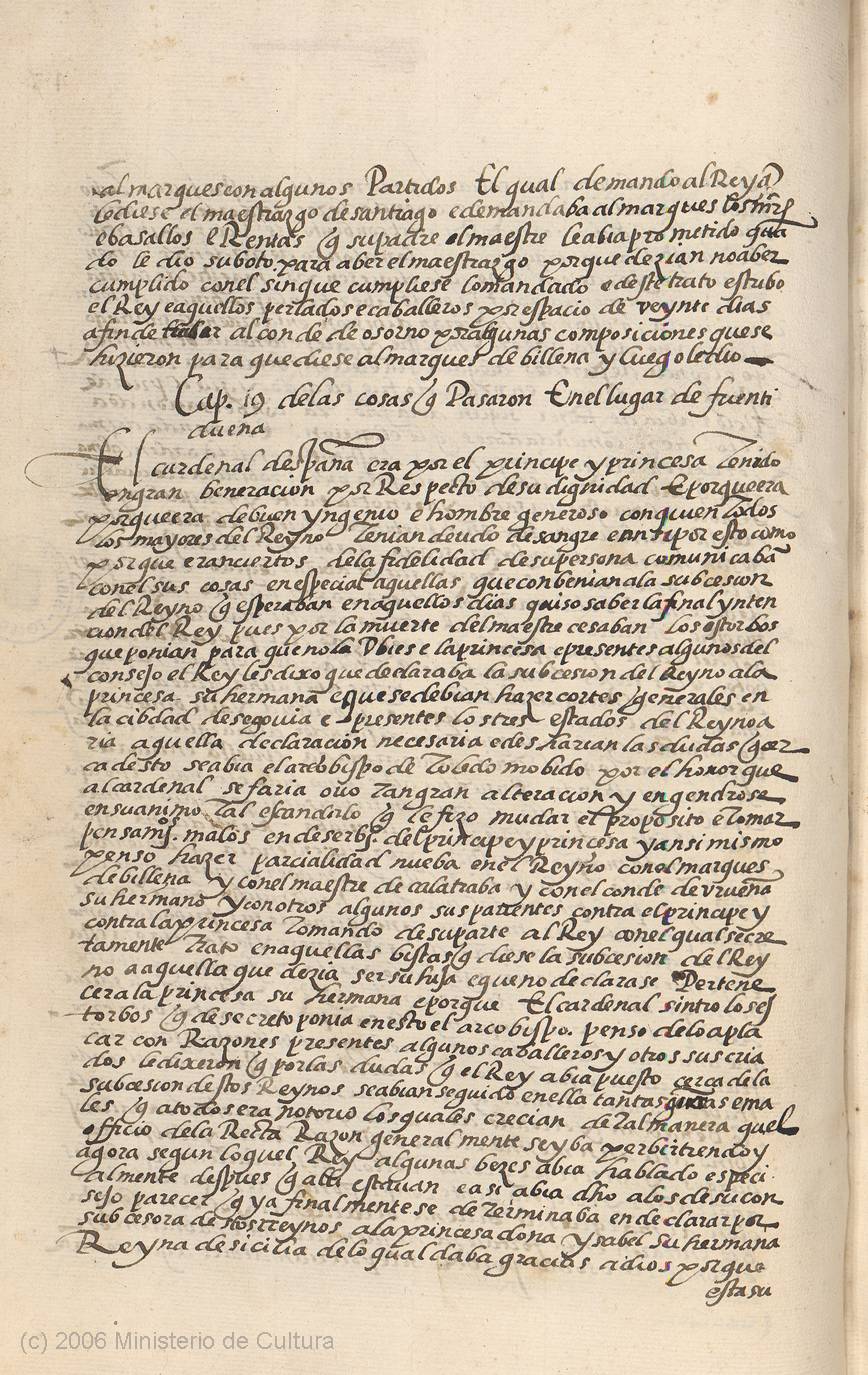 al marques con algunos Partidos El qual demando al Rey q̃
le diese el maestrazgo de santiago e demandaba al marques los mrs
e basallos e Rentas q̃ su padre el maestre le abia prometido quã
do le dio su boto para aber el maestrazgo porque dezian no aber
cumplido con el sin que cumpliese lo mandado e deste trato estubo
el Rey e aquellos perlados e caballeros por espacio de veynte dias
a fin de al conde de osorno por algunas composiciones que se
hizieron para que diese al marques de billena y luego le dio
Cap. 19 de las cosas q̃ Pasaron En el lugar de fuenti
dueña
El cardenal despaña era por el principe y princesa Tenido
en gran beneracion por Respecto de su dignidad E porque era
porque era de buen yngenio e hombre generoso con quien Todos
los mayores del Reyno Tenian deudo de sangre e por esto como
porque eran ciertos de la fidelidad de su persona comunicabã
con el sus cosas en especial aquellas que conbenian a la subcesion
del Reyno q̃ esperaban en aquellos dias quiso saber la final ynten
cion del Rey pues por la muerte del maestre cesaban los estorbos
que ponian para que no la Vbiese la princesa e presentes algunos del
consejo el Rey les dixo que declaraba la subcesion del Reyno a la
princesa su hermana e que se debian hazer cortes generales en
la cibdad de segovia e presentes los tres estados del Reyno a
ria aquella declaracion necesaria e desharian las dudas q̃ cer
ca desto se abia el arcobispo de Toledo mobido por el honor que
al cardenal se faria ouo Tan gran alteracion y engendrose
en su animo Tal escandalo q̃ le fizo mudar el proposito e Tomar
pensamjº. malos en deserbiº. del principe y princesa y ansi mismo
penso hazer parcialidad nueba en el Reyno con el marques
de billena y con el maestre de calatraba y con el conde de vrueña
su hermano y con otros algunos sus parientes contra el principe y
contra la princesa Tomando de su parte al Rey con el qual secre
tamente Trato en aquellas bistas q̃ diese la subcesion del Rey
no a aquella que dezia ser su hija e que no declarase Pertene
cer a la princesa su hermana e porque El cardenal sintio los es
torbos q̃ de secreto ponia en esto el arcobispo. penso de lo apla
car con Razones presentes algunos caballeros y otros sus cria
dos le dixeron q̃ por las dudas q̃ el Rey abia puesto cerca de la
subcesion destos Reynos se abian seguido en ella tantas e ma
les q̃ a todos era notorio los quales crecian de Tal manera que el
officio de la Recta Razon generalmente se yba perbirtiendo y
agora segun lo quel Rey algunas bezes abia hablado especi
almente despues q̃ alli estavan e asi abia dho a los de su con
sejo parecer q̃ ya finalmente se determinaba en declarar por
subcesora de nostreynos a la princesa doña ysabel su hermana
Reyna de sicilia de lo qual daba gracias a dios porque
esta su
(c) 2006 Ministerio de Cultura